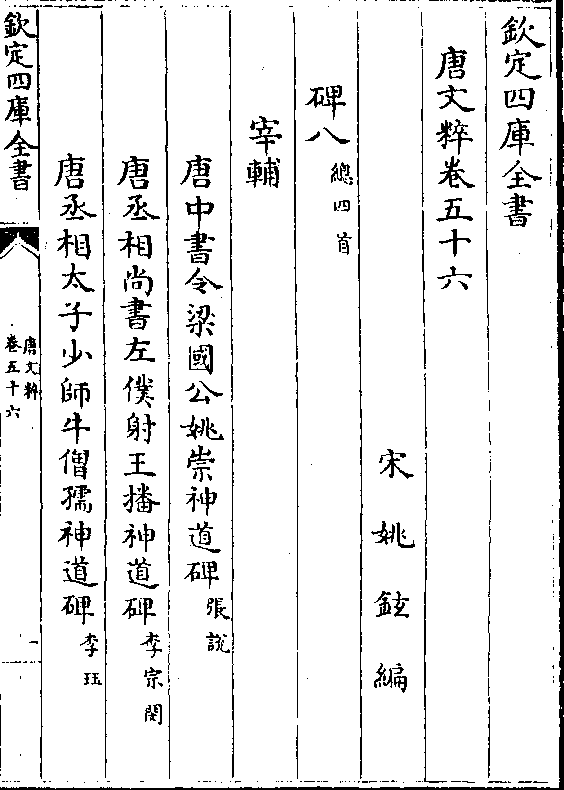 欽定四庫全書
唐文粹卷五十六
宋姚鉉編
碑八總四首
宰輔
唐中書令梁國公姚崇神道碑張說
唐丞相尚書左僕射王播神道碑李宗閔
唐丞相太子少師牛僧孺神道碑李珏
欽定四庫全書
唐文粹
卷五十六
一